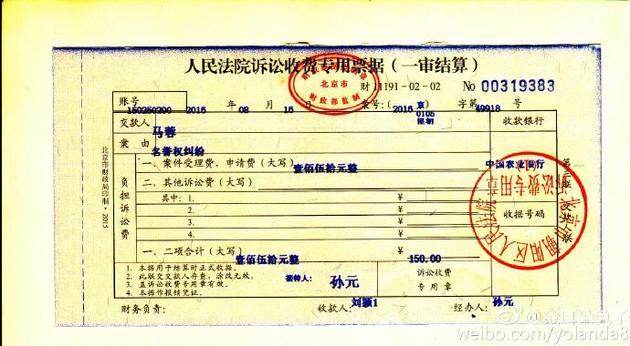 人民法院诉讼收费专用票据（一审结算）
北京市
财政部监制
财 11191-02-02 No 00319383
账号 150250200 2016 年 08 月 16 日 案号：(2016) 京0105民初 字第 49918 号
交款人 马蓉 收款银行
案由 名誉权纠纷
负担诉讼费
一、案件受理费、申请费（大写） 壹佰伍拾元整 中国农业银行
二、其他诉讼费（大写）
其中：1. ¥
2. ¥ 收据号码
3. ¥
4. ¥
一、二项合计（大写） 壹佰伍拾元整 ¥ 150.00
1. 本据用于结算时正式收据。
2. 此联交交款人存查，涂改无效。
3. 盖诉讼收费专用章有效。
4. 本据作报销凭证。
接待人： 孙元
诉讼收费
专用章
财务负责： 收款人： 刘颖1 经办人： 孙元
北京市财政局印制·2015
北京市朝阳区人民法院
诉讼费专用章
weibo.com/yolanda8